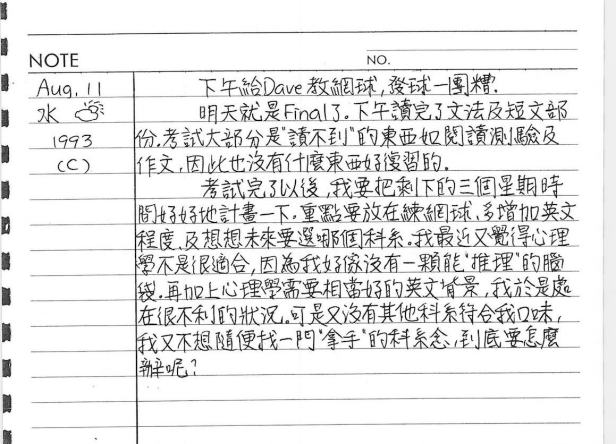 NOTE
NO.
Aug. 11
水
1993
(C)
下午給Dave教網球,發球一團糟.
明天就是Final了.下午讀完了文法及短文部
份.考試大部分是"讀不到"的東西如閱讀測驗及
作文,因此也沒有什麼東西好復習的.
考試完了以後,我要把剩下的三個星期時
間好好地計畫一下.重點要放在練網球、多增加英文
程度、及想想未來要選哪個科系.我最近又覺得心理
學不是很適合,因為我好像沒有一顆能"推理"的腦
袋.再加上心理學需要相當好的英文背景,我於是處
在很不利的狀況.可是又沒有其他科系符合我口味,
我又不想隨便找一門"拿手"的科系念,到底要怎麼
辦呢?